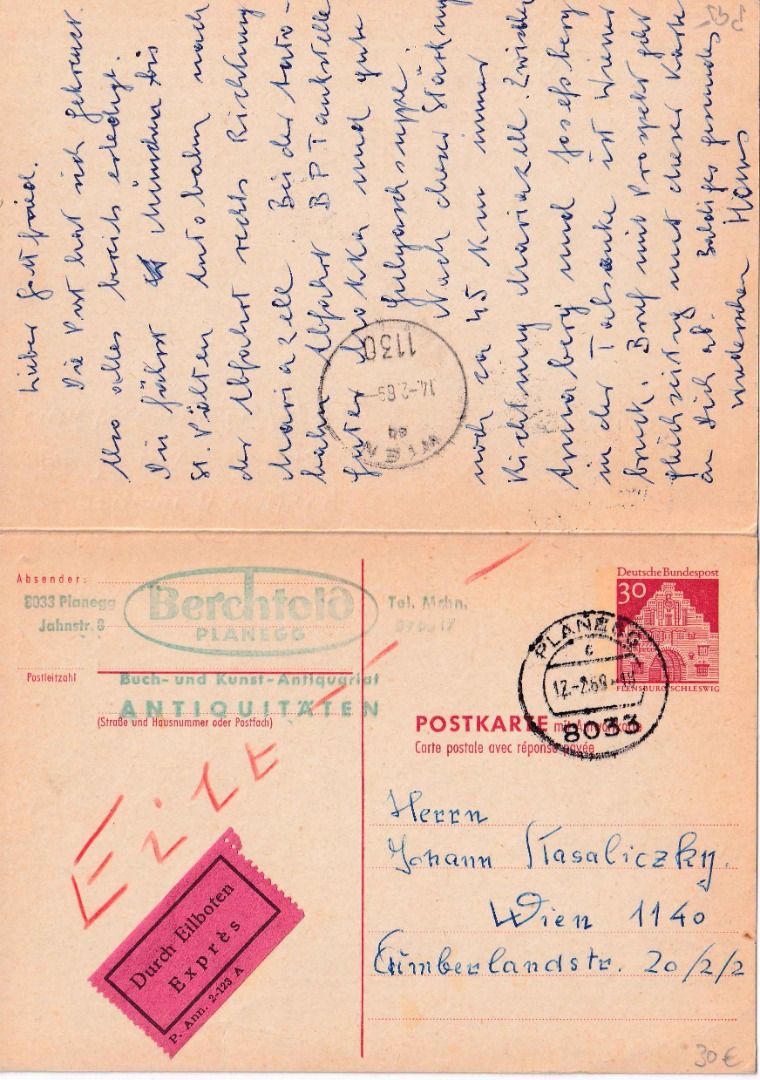 Lieber Gottfried.
Die Post hat sich gekreuzt.
Also alles bereits erledigt.
Du fährst Münschen bis
St. Pölten Autobahn nach
der Abfahrt rechts Richtung
Mariazell. Bei der Auto-
bahn Abfahrt BP Tankstelle
Guter Mokka und gute
Gulyaschsuppe.
Nach dieser Stärkung
noch ca 45 Km immer
Richtung Mariazell. Zwischen
Annaberg und Josefsberg
in der Talsenke ist Wiener
bruck. Brief mit Prospekt geht
gleichzeitig mit dieser Karte
an Dich ab. Baldiges gesundes
wiedersehen Hans
WIEN
14.-2.69
1130
Absender:
8033 Planegg
Jahnstr. 8
Berchtold
PLANEGG
Tel. Mchn.
Postleitzahl
Buch- und Kunst-Antiquariat
ANTIQUITÄTEN
(Straße und Hausnummer oder Postfach)
Deutsche Bundespost
30
FLENSBURG/SCHLESWIG
PLANEGG
c
12.-2.69.-18
8033
POSTKARTE mit Antwortkarte
Carte postale avec réponse payée
Eilt
Durch Eilboten
Exprès
P. Ann. 2-123 A
Herrn
Johann Stasaliczky.
Wien 1140
Cumberlandstr. 20/2/2
30 €